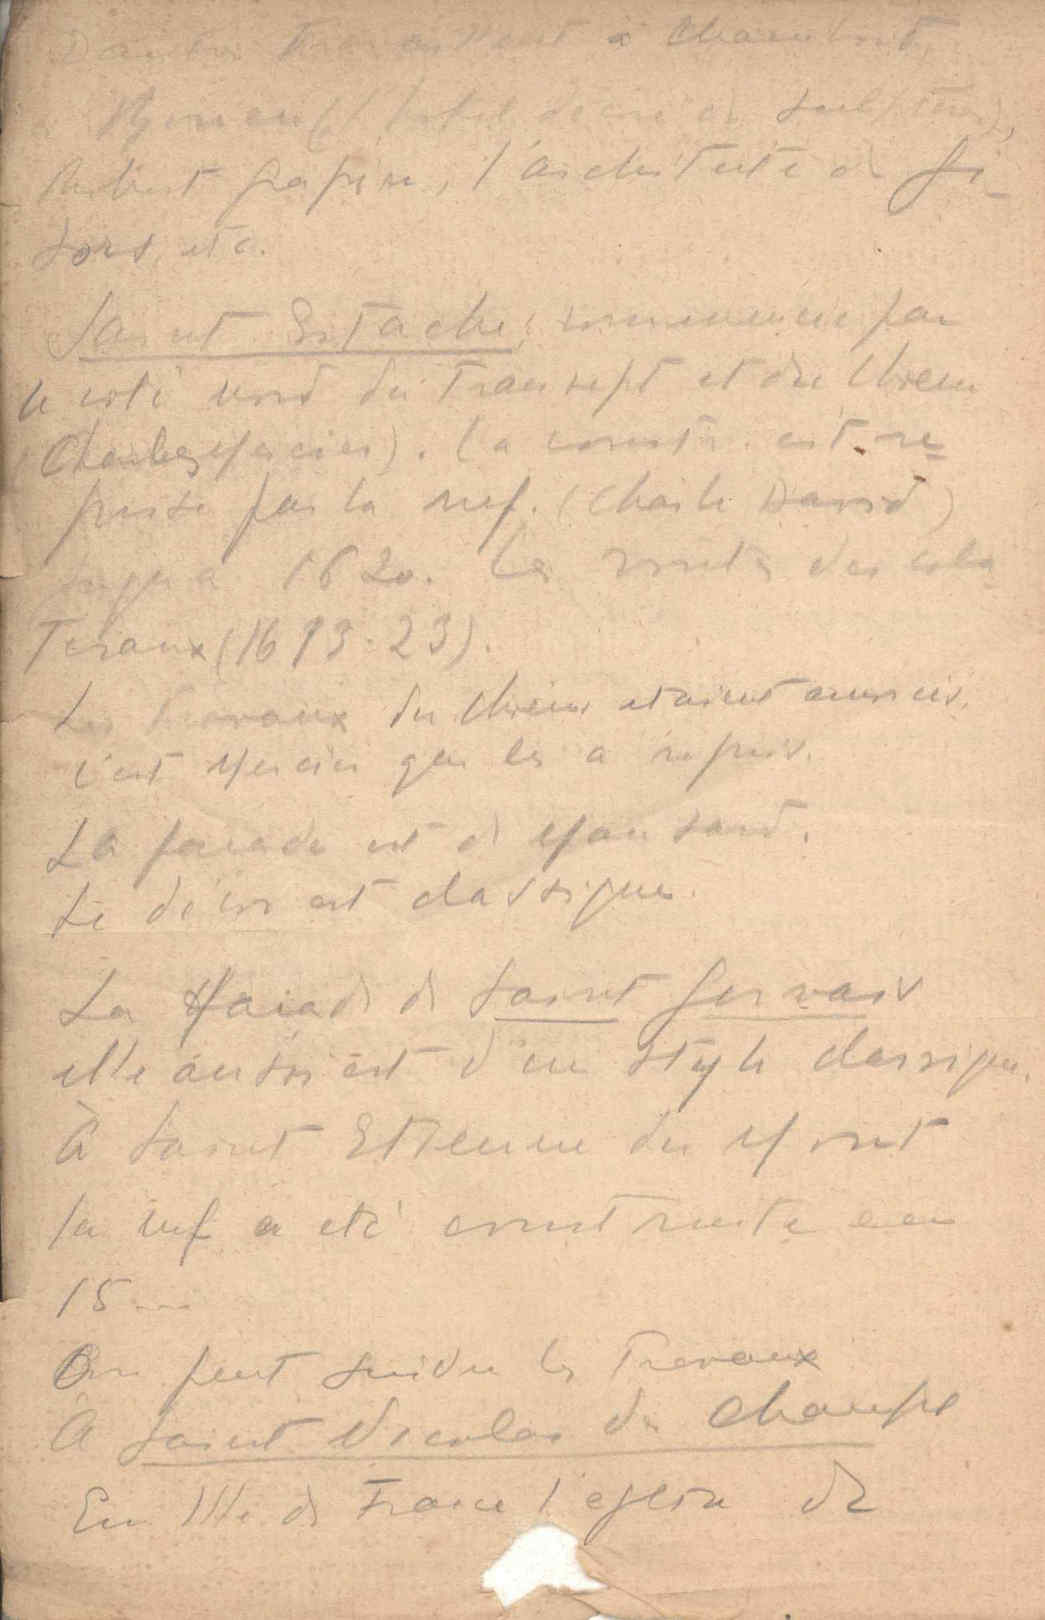 D'autres travaillent à Chambord,
à
Robert Grapin, l'architecte de Gi-
sors, etc.
Saint Estache, commencée par
le coté nord du Transept et du Choeur
(Charles Mercier). La constr. est re-
prise par la nef. (Charles David)
jusqu'a 1620. Les voutes des cola
Teraux (1613-23).
Les Travaux du Choeur étaient
c'est Mercier que les a repris.
La facade est de Mansard.
Le décor est classique.
La facade de Saint Gervais
elle aussi est d'un style classique.
À Saint Etienne du Mont
la nef a été construite en
15
On peut suivre les Travaux
À Saint Nicolas des Champs
En Ille de France l'eglise de